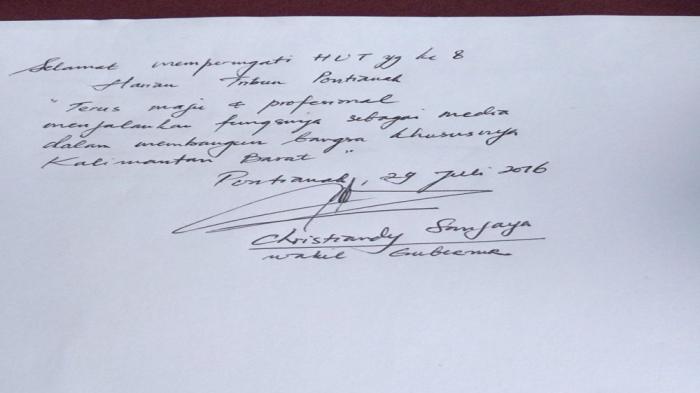 Selamat memperingati HUT yg ke 8
Harian Tribun Pontianak
"Terus maju & profesional
menjalankan fungsinya sebagai media
dalam membangun bangsa khususnya
Kalimantan Barat"
Pontianak, 29 Juli 2016
Christiandy Sanjaya
Wakil Gubernur